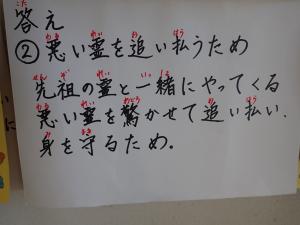 答え
②悪い霊を追い払うため
先祖の霊と一緒にやってくる
悪い霊を驚かせて追い払い、
身を守るため。